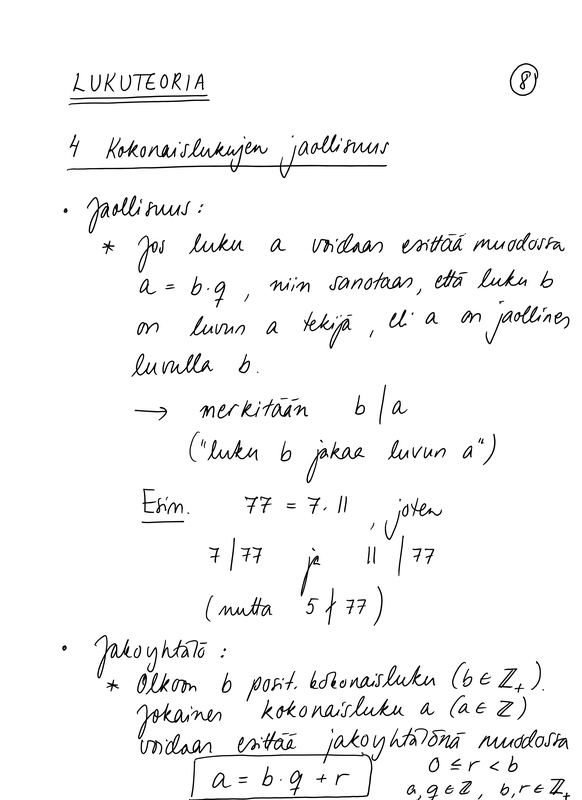 LUKUTEORIA 8
4 Kokonaislukujen jaollisuus
• Jaollisuus:
* Jos luku a voidaan esittää muodossa
a = b·q, niin sanotaan, että luku b
on luvun a tekijä, eli a on jaollinen
luvulla b.
→ merkitään b | a
("luku b jakaa luvun a")
Esim. 77 = 7·11, joten
7 | 77 ja 11 | 77
(mutta 5 ∤ 77)
• Jakoyhtälö:
* Olkoon b posit. kokonaisluku (b ∈ ℤ₊).
Jokainen kokonaisluku a (a ∈ ℤ)
voidaan esittää jakoyhtälönä muodossa
a = b·q + r 0 ≤ r < b
a, q ∈ ℤ, b, r ∈ ℤ₊